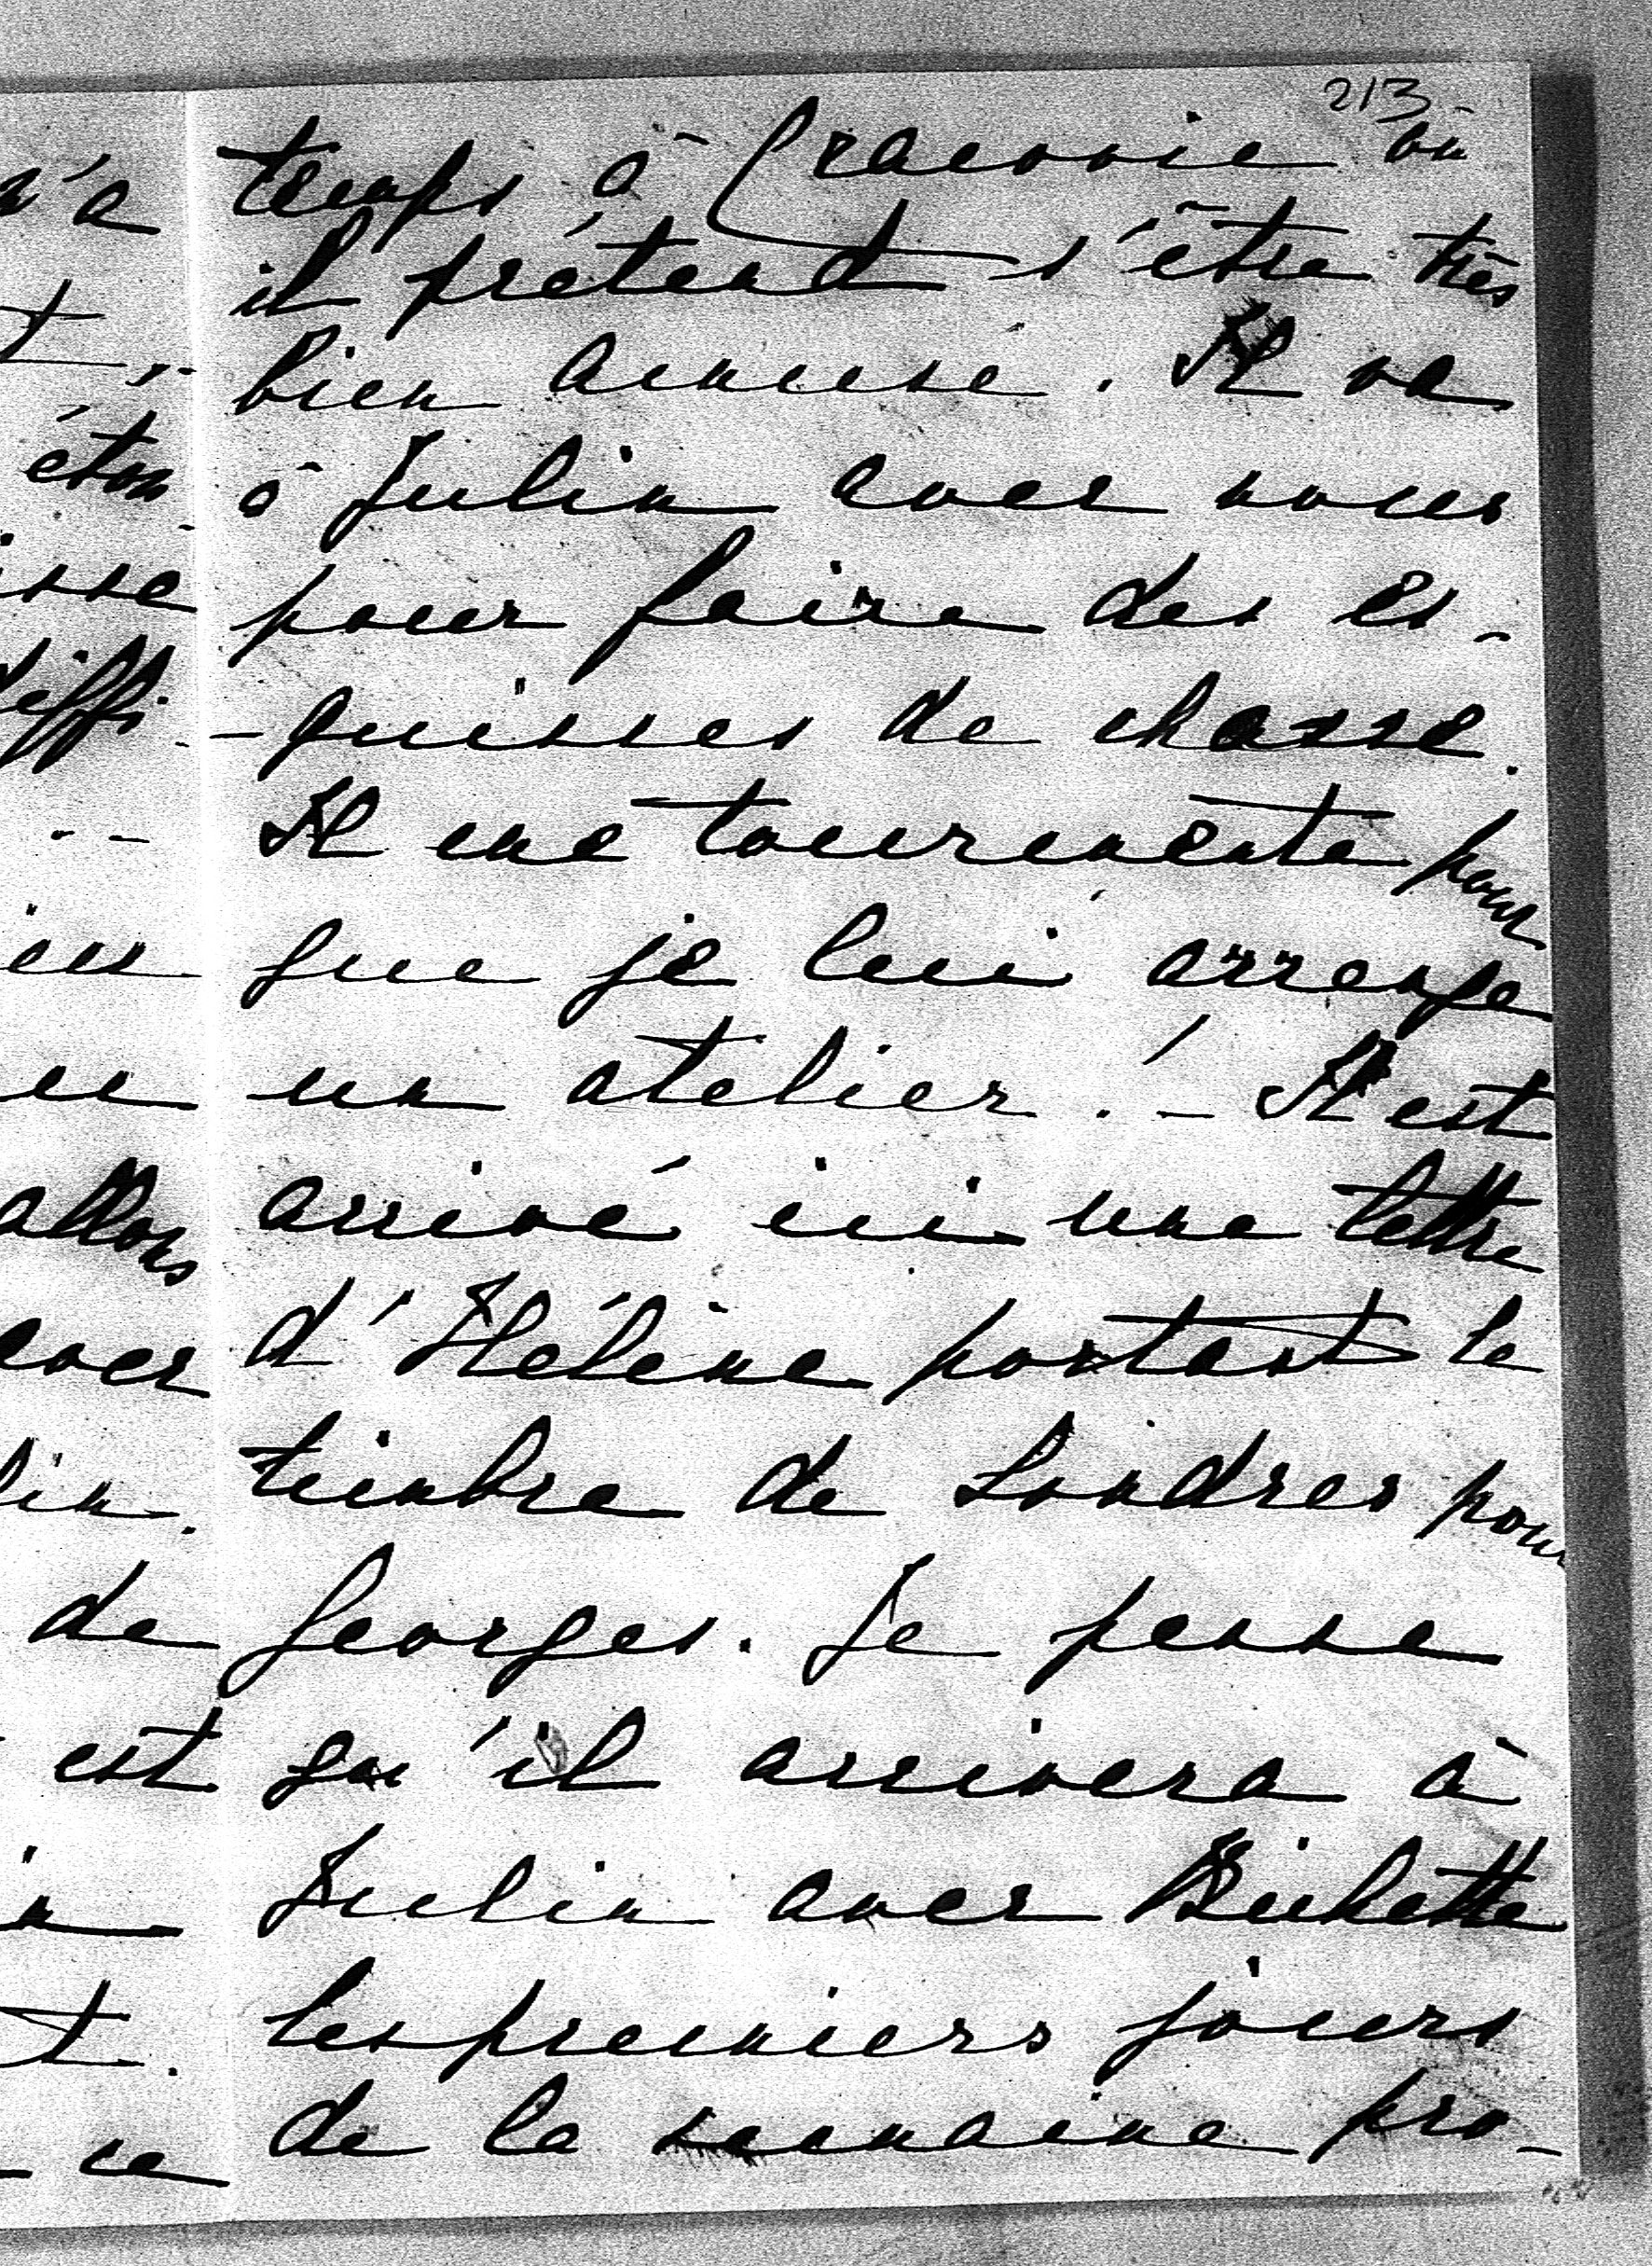 213
temps à Cracovie où
il prétend s'être très
bien amusé. Il va
à Julin avec nous
pour faire des es-
-quisses de chasse.
Il me tourmente pour
que je lui arrange
un atelier! – Il est
arrivé ici une lettre
d'Hélène portant le
timbre de Londres pour
Georges. Je pense
qu'il arrivera à
Julin avec Bichette
les premiers jours
de la semaine pro-
n'a
t
éton
isse
d'effi-
allons
avec
lin.
de
est
t.
ce